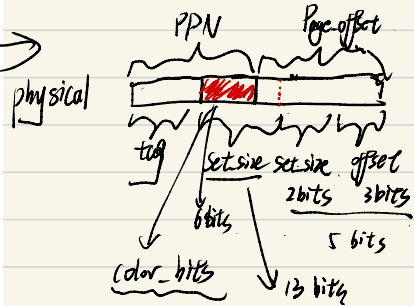 PPN Page-offset
physical
tag set_size set_size offset
2bits 3bits
6bits
5 bits
color_bits
13 bits